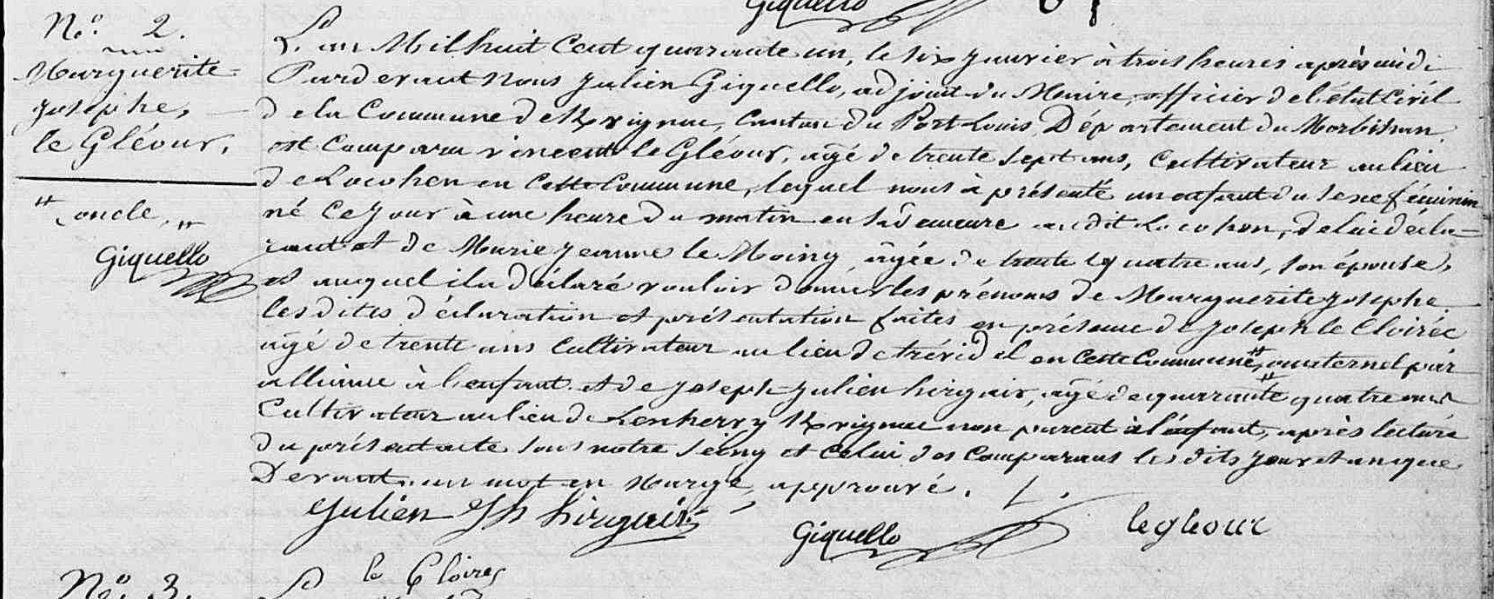 Giquello
N.o 2.
Marguerite
Josephe,
le Gléour.
"oncle,"
Giquello
L'an Mil huit Cent quarante un, le six Janvier à trois heures après midi
Pardevant Nous Julien Giquello, adjoint du Maire, officier de l'état Civil
de la Commune de Kvignac, Canton du Port-Louis Département du Morbihan
est Comparu vincent le Gléour, agé de trente sept ans, Cultivateur au lieu
de Locohen en Cette Commune, lequel nous à présenté un enfant du sexe féminin
né Ce jour à une heure du matin en sa demeure au dit Locohen, de lui décla-
rant et de Marie Jeanne le Moing agée de trente quatre ans, son épouse,
et auquel il a déclaré vouloir donner les prénoms de Marguerite Josephe
les dites déclaration et présentation faites en présence de Joseph le Cloirec
agé de trente ans Cultivateur au lieu de trévidel en Cette Commune, " maternel par
alliance à l'enfant et de Joseph Julien hirgair, agé de quarante quatre ans
Cultivateur au lieu de Kvignac non parent à l'enfant, après lecture
du présent acte sous notre seing et Celui des Comparans les dits jour et an que
Devant. un mot en Marge, approuvé.
Julien Jh hirgair
Giquello
le gleour
le Cloirec
N.o 3.